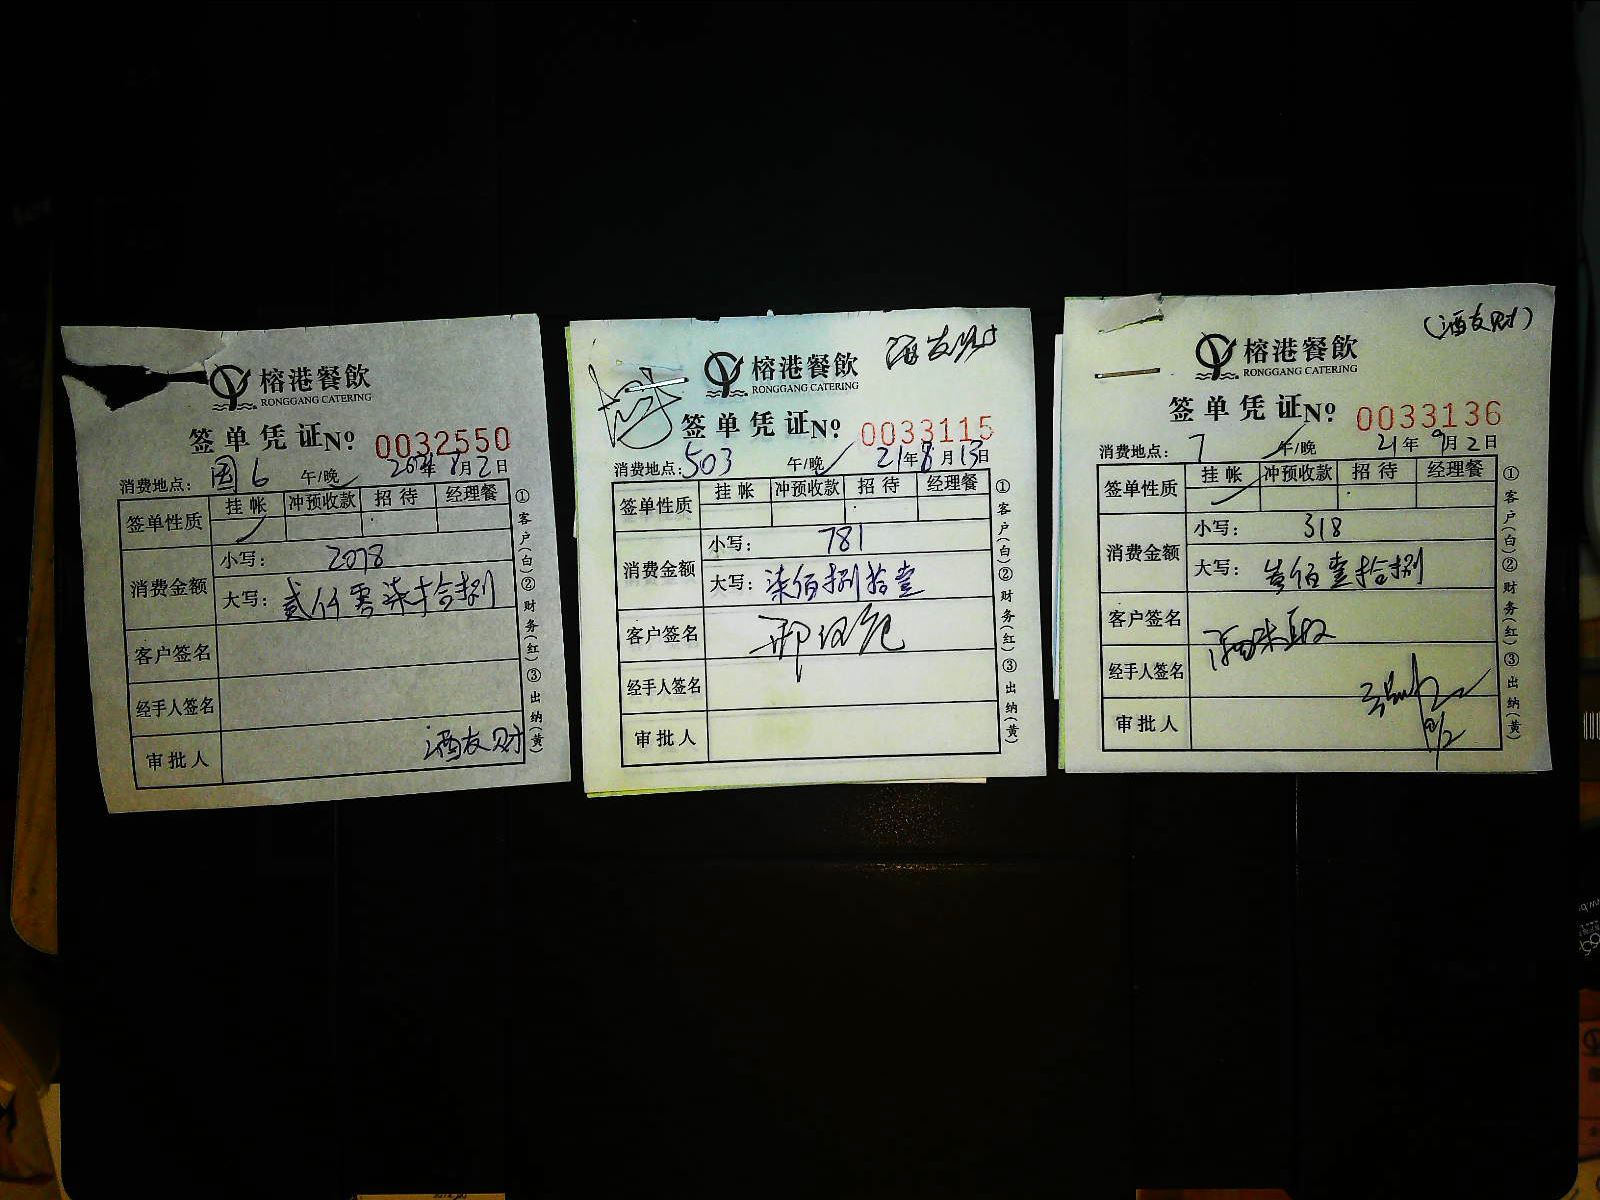 榕港餐飲
RONGGANG CATERING
签单凭证 № 0032550
消费地点: 国6 午/晚 8月2日
签单性质 挂帐 冲预收款 招待 经理餐
消费金额
小写: 2078
大写: 贰仟零柒拾捌
客户签名
经手人签名
审批人
酒友财
①客户(白)②财务(红)③出纳(黄)
酒友财
榕港餐飲
RONGGANG CATERING
签单凭证 № 0033115
消费地点: 503 午/晚 21年8月13日
签单性质 挂帐 冲预收款 招待 经理餐
消费金额
小写: 781
大写: 柒佰捌拾壹
客户签名
经手人签名
审批人
①客户(白)②财务(红)③出纳(黄)
(酒友财)
榕港餐飲
RONGGANG CATERING
签单凭证 № 0033136
消费地点: 7 午/晚 21年9月2日
签单性质 挂帐 冲预收款 招待 经理餐
消费金额
小写: 318
大写: 叁佰壹拾捌
客户签名
经手人签名
审批人
①客户(白)②财务(红)③出纳(黄)